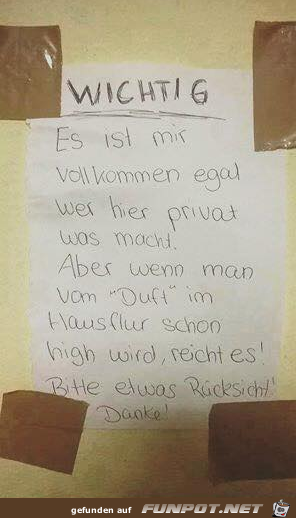 WICHTIG
Es ist mir
vollkommen egal
wer hier privat
was macht.
Aber wenn man
vom "Duft" im
Hausflur schon
high wird, reicht es!
Bitte etwas Rücksicht!
Danke!
gefunden auf FUNPOT.NET